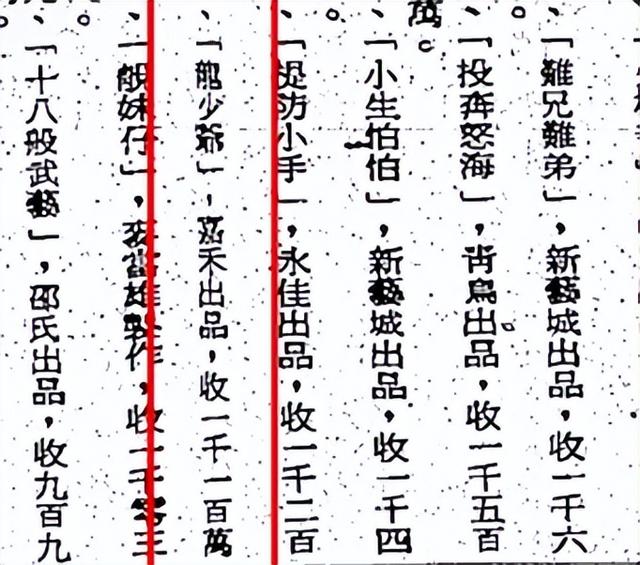 、「難兄難弟」，新藝城出品，收一千六
。
、「投奔怒海」，青鳥出品，收一千五百
萬。
、「小生怕怕」，新藝城出品，收一千四
。
、「提防小手」，永佳出品，收一千二百
、「龍少爺」，嘉禾出品，收一千一百萬
、「靚妹仔」，麥當雄製作，收一千零三
。
、「十八般武藝」，邵氏出品，收九百九